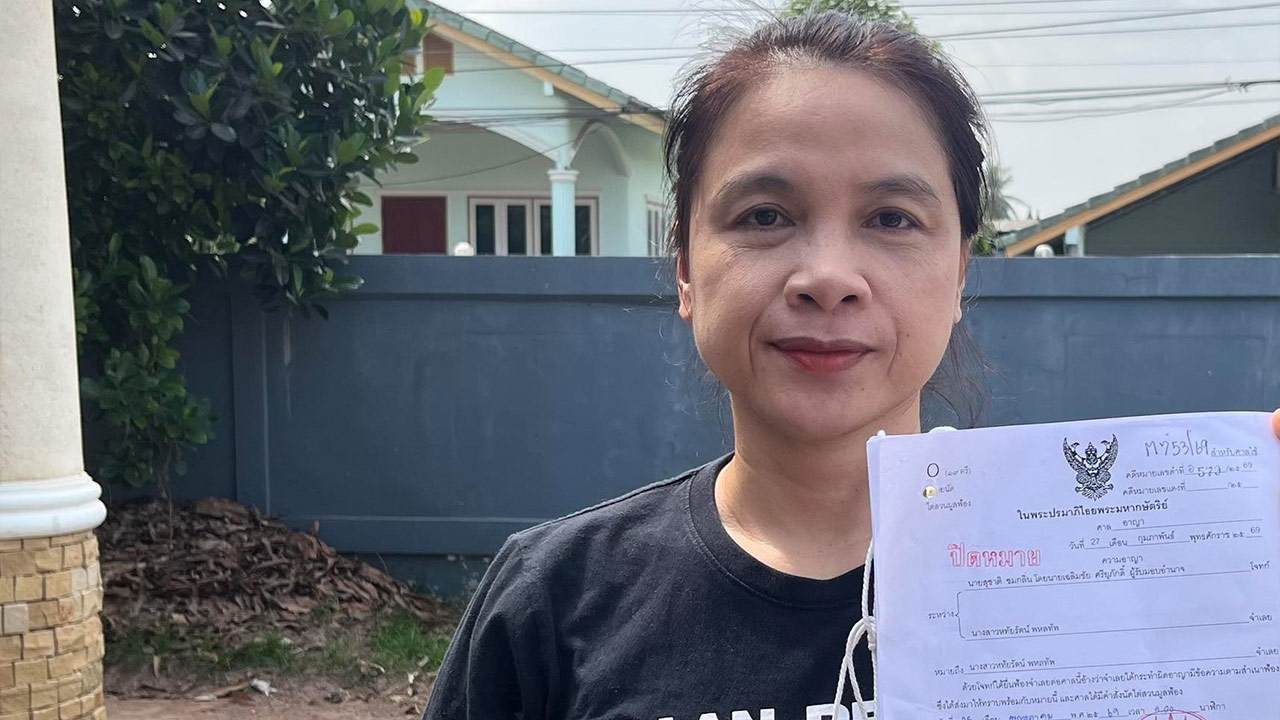 ม ข 53/69
○ (๑๙ ตรี) สำหรับศาลใช้
คดีหมายเลขดำที่ อ 573 /๒๕ 69
ยนัด
คดีหมายเลขแดงที่ /๒๕
ไต่สวนมูลฟ้อง
ในพระปรมาภิไธยพระมหากษัตริย์
ศาล อาญา
วันที่ 27 เดือน กุมภาพันธ์ พุทธศักราช ๒๕ 69
ปิดหมาย
ความอาญา
นายสุชาติ ชมกลิ่น โดยนายเฉลิมชัย ศรีบูภักดิ์ ผู้รับมอบอำนาจ โจทก์
ระหว่าง
นางสาวหทัยรัตน์ พหลทัพ จำเลย
หมายถึง นางสาวหทัยรัตน์ พหลทัพ จำเลย
ด้วยโจทก์ได้ยื่นฟ้องจำเลยต่อศาลนี้อ้างว่าจำเลยได้กระทำผิดอาญามีข้อความตามสำเนาฟ้อง
ซึ่งได้ส่งมาให้ทราบพร้อมกับหมายนี้ และศาลได้มีคำสั่งนัดไต่สวนมูลฟ้อง
เดือน พฤษภาคม พ.ศ.๒๕ 69 นาฬิกา